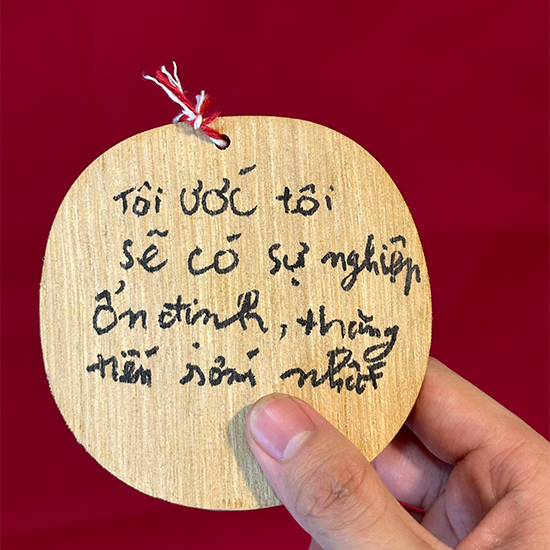 Tôi ước tôi
sẽ có sự nghiệp
ổn định, thăng
tiến sớm nhất